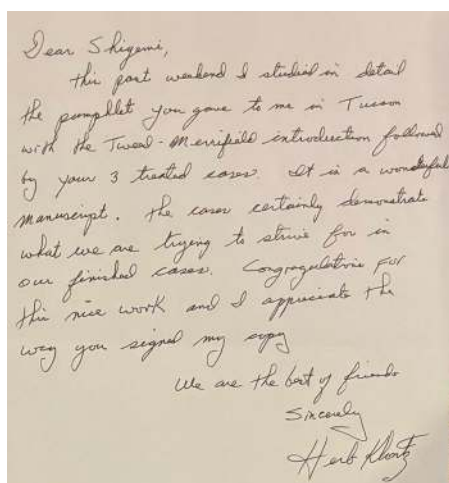 Dear Shigemi,
this past weekend I studied in detail
the pamphlet you gave to me in Tucson
with the Tweed-Merrifield introduction followed
by your 3 treated cases. It is a wonderful
manuscript. The cases certainly demonstrate
what we are trying to strive for in
our finished cases. Congragulations for
this nice work and I appreciate the
way you signed my copy
We are the best of friends
Sincerely
Herb Klontz